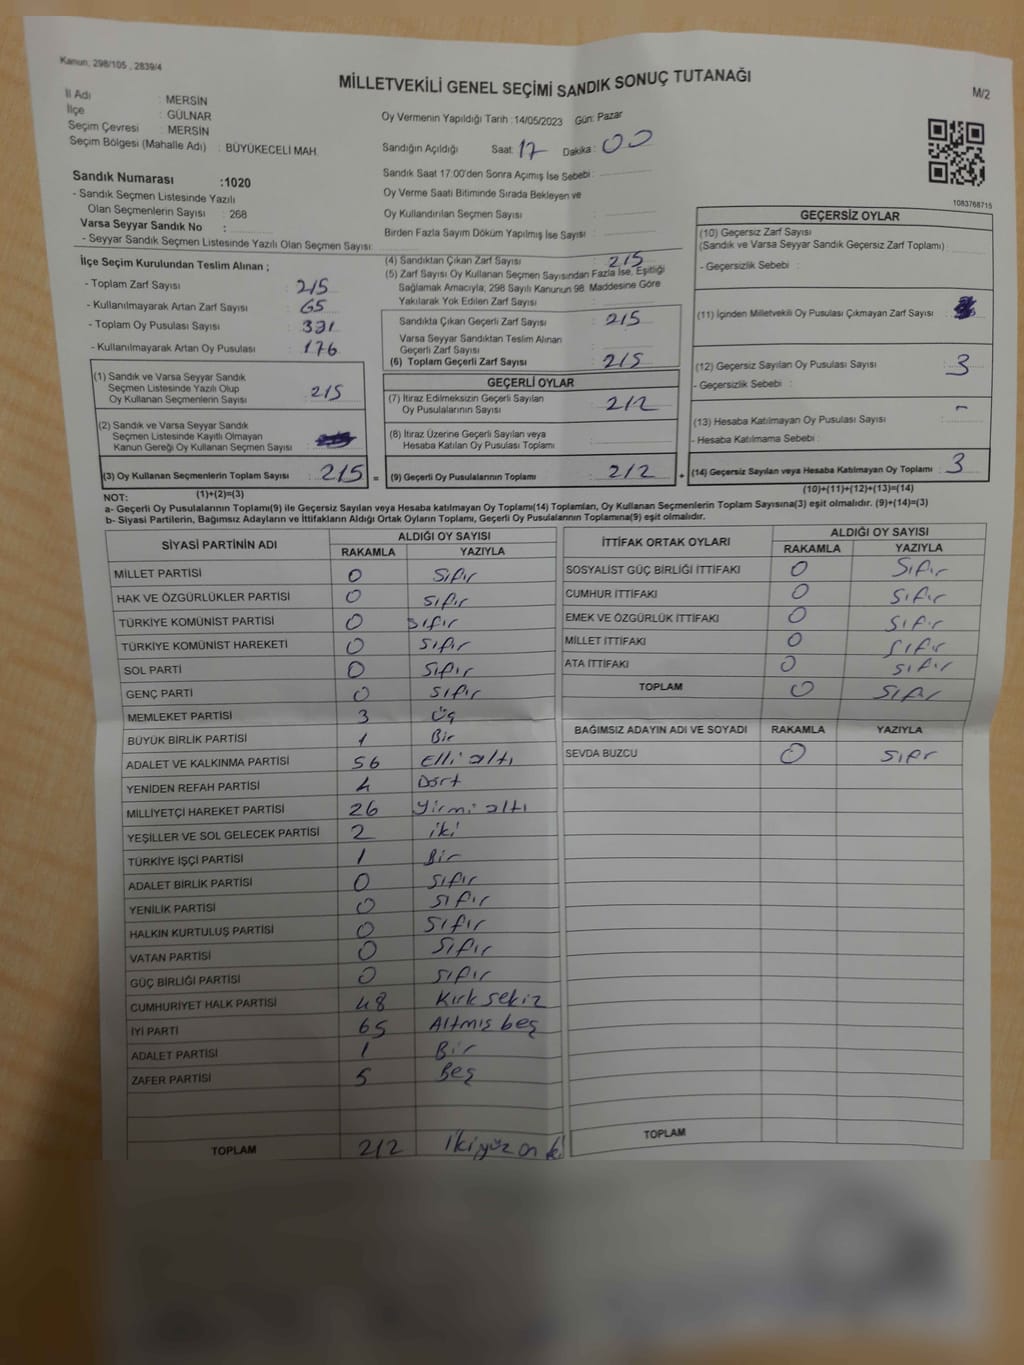 Kanun, 298/105 , 2839/4
MİLLETVEKİLİ GENEL SEÇİMİ SANDIK SONUÇ TUTANAĞI
M/2
İl Adı : MERSİN
İlçe : GÜLNAR
Seçim Çevresi : MERSİN
Seçim Bölgesi (Mahalle Adı) : BÜYÜKECELİ MAH.
Oy Vermenin Yapıldığı Tarih :14/05/2023 Gün: Pazar
Sandığın Açıldığı Saat: 17 Dakika : 00
Sandık Saat 17.00'den Sonra Açımış İse Sebebi :
Oy Verme Saati Bitiminde Sırada Bekleyen ve
Oy Kullandırılan Seçmen Sayısı :
Birden Fazla Sayım Döküm Yapılmış İse Sayısı :
1083768715
Sandık Numarası :1020
- Sandık Seçmen Listesinde Yazılı
Olan Seçmenlerin Sayısı : 268
Varsa Seyyar Sandık No :
- Seyyar Sandık Seçmen Listesinde Yazılı Olan Seçmen Sayısı:
İlçe Seçim Kurulundan Teslim Alınan ;
- Toplam Zarf Sayısı : 215
- Kullanılmayarak Artan Zarf Sayısı : 65
- Toplam Oy Pusulası Sayısı : 391
- Kullanılmayarak Artan Oy Pusulası : 176
(1) Sandık ve Varsa Seyyar Sandık
Seçmen Listesinde Yazılı Olup
Oy Kullanan Seçmenlerin Sayısı : 215
(2) Sandık ve Varsa Seyyar Sandık
Seçmen Listesinde Kayıtlı Olmayan
Kanun Gereği Oy Kullanan Seçmen Sayısı :
(3) Oy Kullanan Seçmenlerin Toplam Sayısı : 215 =
(1)+(2)=(3)
(4) Sandıktan Çıkan Zarf Sayısı : 215
(5) Zarf Sayısı Oy Kullanan Seçmen Sayısından Fazla İse, Eşitliği
Sağlamak Amacıyla; 298 Sayılı Kanunun 98. Maddesine Göre
Yakılarak Yok Edilen Zarf Sayısı :
Sandıkta Çıkan Geçerli Zarf Sayısı : 215
Varsa Seyyar Sandıktan Teslim Alınan
Geçerli Zarf Sayısı :
(6) Toplam Geçerli Zarf Sayısı : 215
GEÇERLİ OYLAR
(7) İtiraz Edilmeksizin Geçerli Sayılan
Oy Pusulalarının Sayısı : 212
(8) İtiraz Üzerine Geçerli Sayılan veya
Hesaba Katılan Oy Pusulası Toplamı :
(9) Geçerli Oy Pusulalarının Toplamı : 212 +
GEÇERSİZ OYLAR
(10) Geçersiz Zarf Sayısı
(Sandık ve Varsa Seyyar Sandık Geçersiz Zarf Toplamı) :
- Geçersizlik Sebebi :
(11) İçinden Milletvekili Oy Pusulası Çıkmayan Zarf Sayısı :
(12) Geçersiz Sayılan Oy Pusulası Sayısı : 3
- Geçersizlik Sebebi :
(13) Hesaba Katılmayan Oy Pusulası Sayısı : -
- Hesaba Katılmama Sebebi :
(14) Geçersiz Sayılan veya Hesaba Katılmayan Oy Toplamı : 3
(10)+(11)+(12)+(13)=(14)
NOT:
a- Geçerli Oy Pusulalarının Toplamı(9) ile Geçersiz Sayılan veya Hesaba katılmayan Oy Toplamı(14) Toplamları, Oy Kullanan Seçmenlerin Toplam Sayısına(3) eşit olmalıdır. (9)+(14)=(3)
b- Siyasi Partilerin, Bağımsız Adayların ve İttifakların Aldığı Ortak Oyların Toplamı, Geçerli Oy Pusulalarının Toplamına(9) eşit olmalıdır.
SİYASİ PARTİNİN ADI
ALDIĞI OY SAYISI
RAKAMLA YAZIYLA
MİLLET PARTİSİ 0 Sıfır
HAK VE ÖZGÜRLÜKLER PARTİSİ 0 Sıfır
TÜRKİYE KOMÜNİST PARTİSİ 0 Sıfır
TÜRKİYE KOMÜNİST HAREKETİ 0 Sıfır
SOL PARTİ 0 Sıfır
GENÇ PARTİ 0 Sıfır
MEMLEKET PARTİSİ 3 Üç
BÜYÜK BİRLİK PARTİSİ 1 Bir
ADALET VE KALKINMA PARTİSİ 56 Elli altı
YENİDEN REFAH PARTİSİ 4 Dört
MİLLİYETÇİ HAREKET PARTİSİ 26 Yirmi altı
YEŞİLLER VE SOL GELECEK PARTİSİ 2 iki
TÜRKİYE İŞÇİ PARTİSİ 1 Bir
ADALET BİRLİK PARTİSİ 0 Sıfır
YENİLİK PARTİSİ 0 Sıfır
HALKIN KURTULUŞ PARTİSİ 0 Sıfır
VATAN PARTİSİ 0 Sıfır
GÜÇ BİRLİĞİ PARTİSİ 0 Sıfır
CUMHURİYET HALK PARTİSİ 48 Kırk sekiz
İYİ PARTİ 65 Altmış beş
ADALET PARTİSİ 1 Bir
ZAFER PARTİSİ 5 Beş
TOPLAM 212 İkiyüz on iki
İTTİFAK ORTAK OYLARI
ALDIĞI OY SAYISI
RAKAMLA YAZIYLA
SOSYALİST GÜÇ BİRLİĞİ İTTİFAKI 0 Sıfır
CUMHUR İTTİFAKI 0 Sıfır
EMEK VE ÖZGÜRLÜK İTTİFAKI 0 Sıfır
MİLLET İTTİFAKI 0 Sıfır
ATA İTTİFAKI 0 Sıfır
TOPLAM 0 Sıfır
BAĞIMSIZ ADAYIN ADI VE SOYADI RAKAMLA YAZIYLA
SEVDA BUZCU 0 Sıfır
TOPLAM